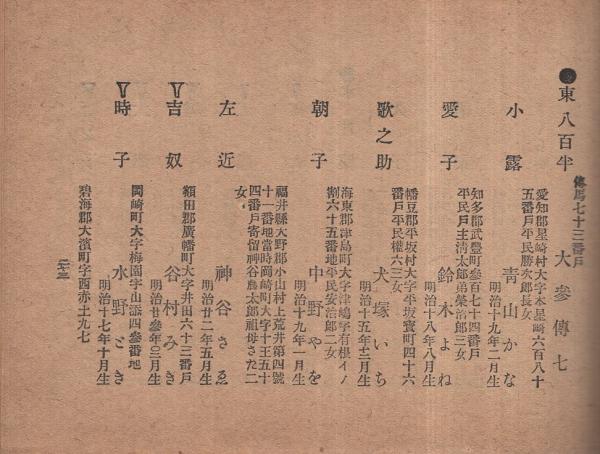 ●東八百半
傳馬七十三番戸
大參傳七
小露
愛知郡星崎村大字本星崎六百八十
五番戸平民勝次郎長女
青山かな
明治十九年二月生
愛子
知多郡武豊町參百七十四番戸
平民戸主清太郎弟榮治郎三女
鈴木よね
明治十八年八月生
歌之助
幡豆郡平坂村大字平坂寳町四十六
番戸平民權六三女
犬塚いち
明治十五年十二月生
朝子
海東郡津島町大字津嶋字有根イノ
割六十五番地平民安治郎二女
中野やを
明治十九年一月生
左近
福井縣大野郡小山村上荒井第四號
十一番地當時岡崎町大字十王五十
四番戸寄留神谷鳥太郎祖母さた二
女
神谷さゑ
明治廿二年五月生
吉奴
額田郡廣幡町大字井田六十三番戸
谷村みき
明治廿參年〇三月生
時子
岡崎町大字梅園字山添四參番地
水野とき
明治十七年十月生
碧海郡大濱町字西赤土九七